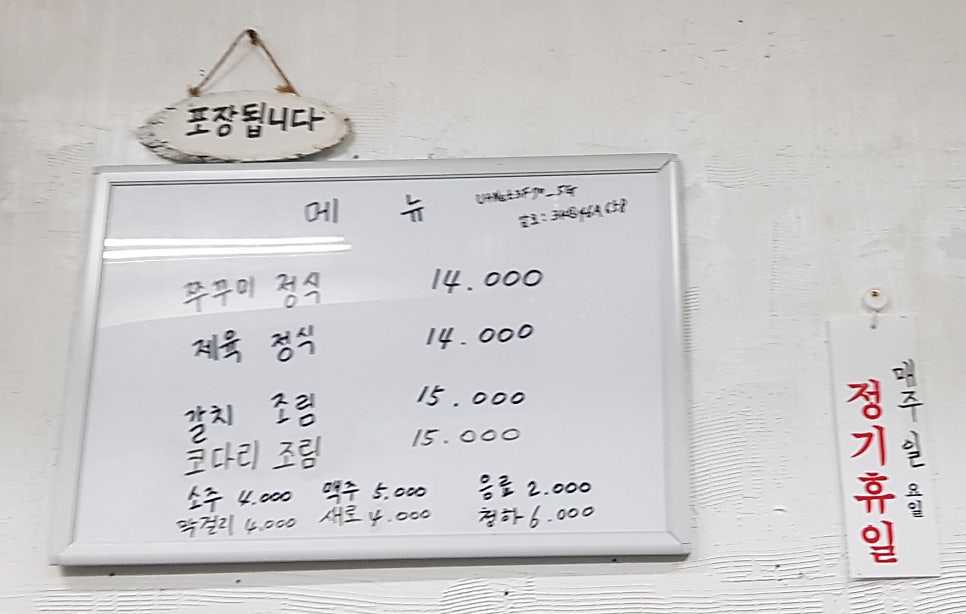 포장됩니다
메 뉴
쭈꾸미 정식 14.000
제육 정식 14.000
갈치 조림 15.000
코다리 조림 15.000
소주 4.000 맥주 5.000 음료 2.000
막걸리 4.000 새로 4.000 청하 6.000
매주 일요일
정기휴일